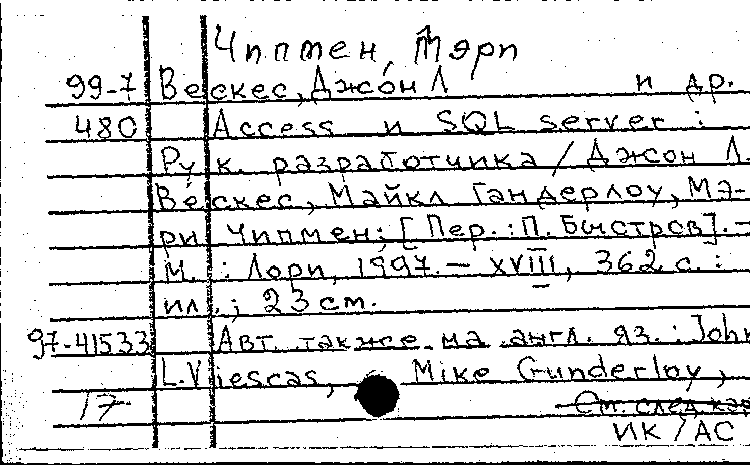 Чипмен, Мэри
99-7 Вескес, Джон Л и др.
480 Access и SQL server :
Рук. разработчика / Джон Л.
Вескес, Майкл Гандерлоу, Мэ-
ри Чипмен; [Пер.: П. Быстров]. -
М. : Лори, 1997. - XVIII, 362 с. :
ил.; 23 см.
97-41533 Авт. также на англ. яз. : John
L. Viescas, Mike Gunderloy,
17 См. след. кар
ИК / АС